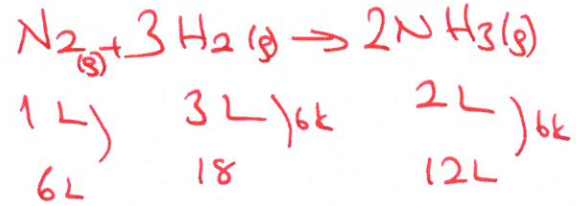 N2(g) + 3H2(g) → 2NH3(g)
1L) 3L)6k 2L)6k
6L 18 12L